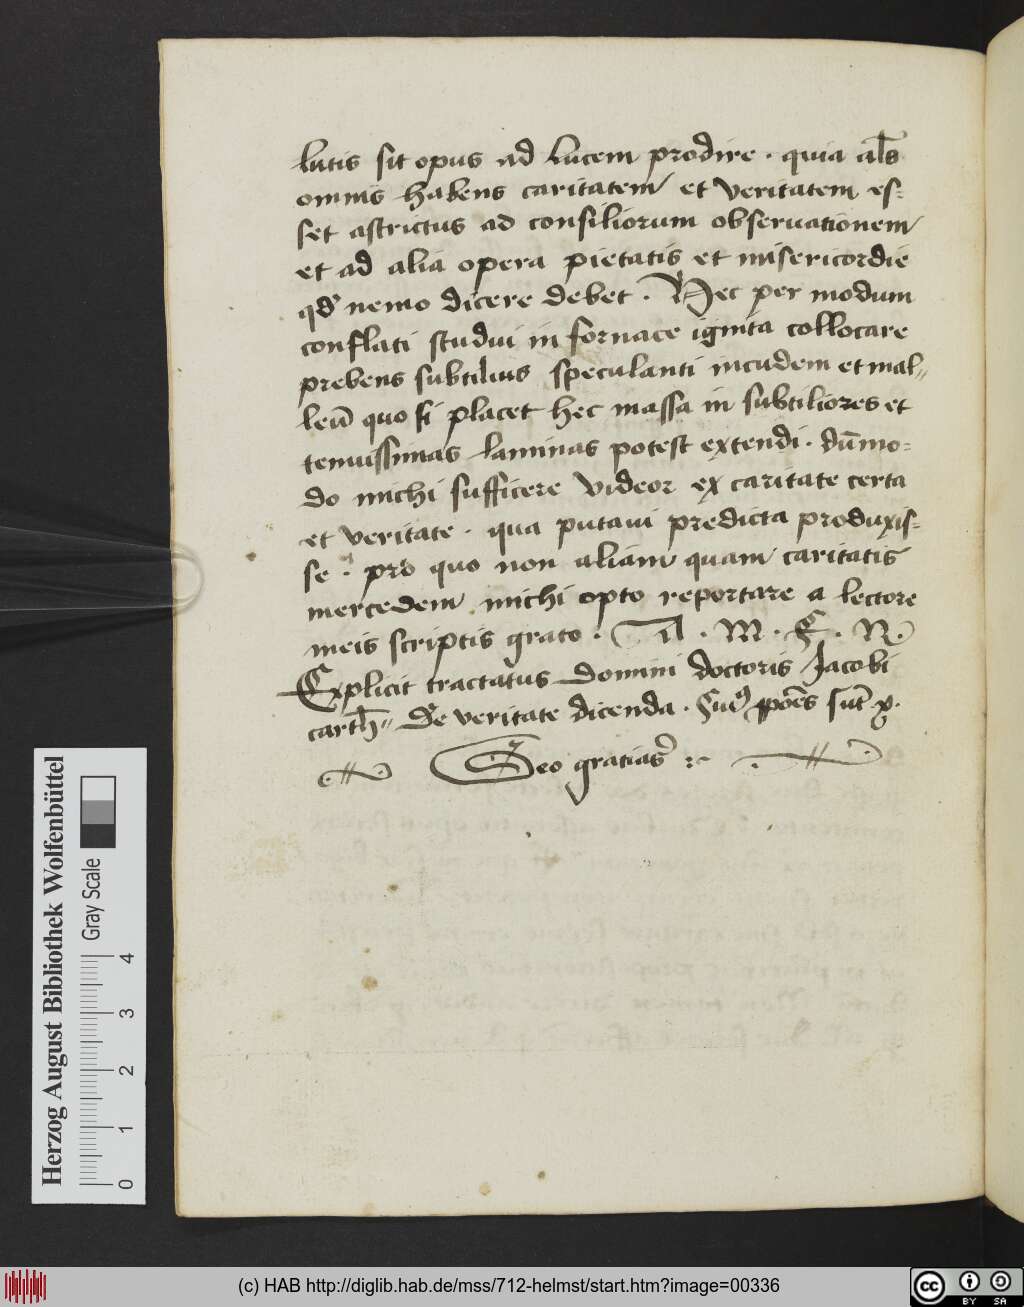 lutis sit opus ad lucem prodire · quia al̄s
omnis habens caritatem et veritatem es-
set astrictus ad consiliorum obseruationem
et ad alia opera pietatis et misericordie
qd' nemo dicere debet · Hec per modum
conflati studui in fornace ignita collocare
prebens subtilius speculanti incudem et mal-
leū quo si placet hec massa in subtiliores et
tenuissimas laminas potest extendi · dūmo-
do michi sufficere videor ex caritate certa
et veritate · qua putaui predicta produxis-
se · pro quo non aliam quam caritatis
mercedem michi opto reportare a lectore
meis scriptis grato · A · M · E · N ·
Explicit tractatus domini doctoris Jacobi
carth̄ De veritate dicenda ·
Deo gratias
Herzog August Bibliothek Wolfenbüttel
Gray Scale
0 1 2 3 4
(c) HAB http://diglib.hab.de/mss/712-helmst/start.htm?image=00336
cc BY SA